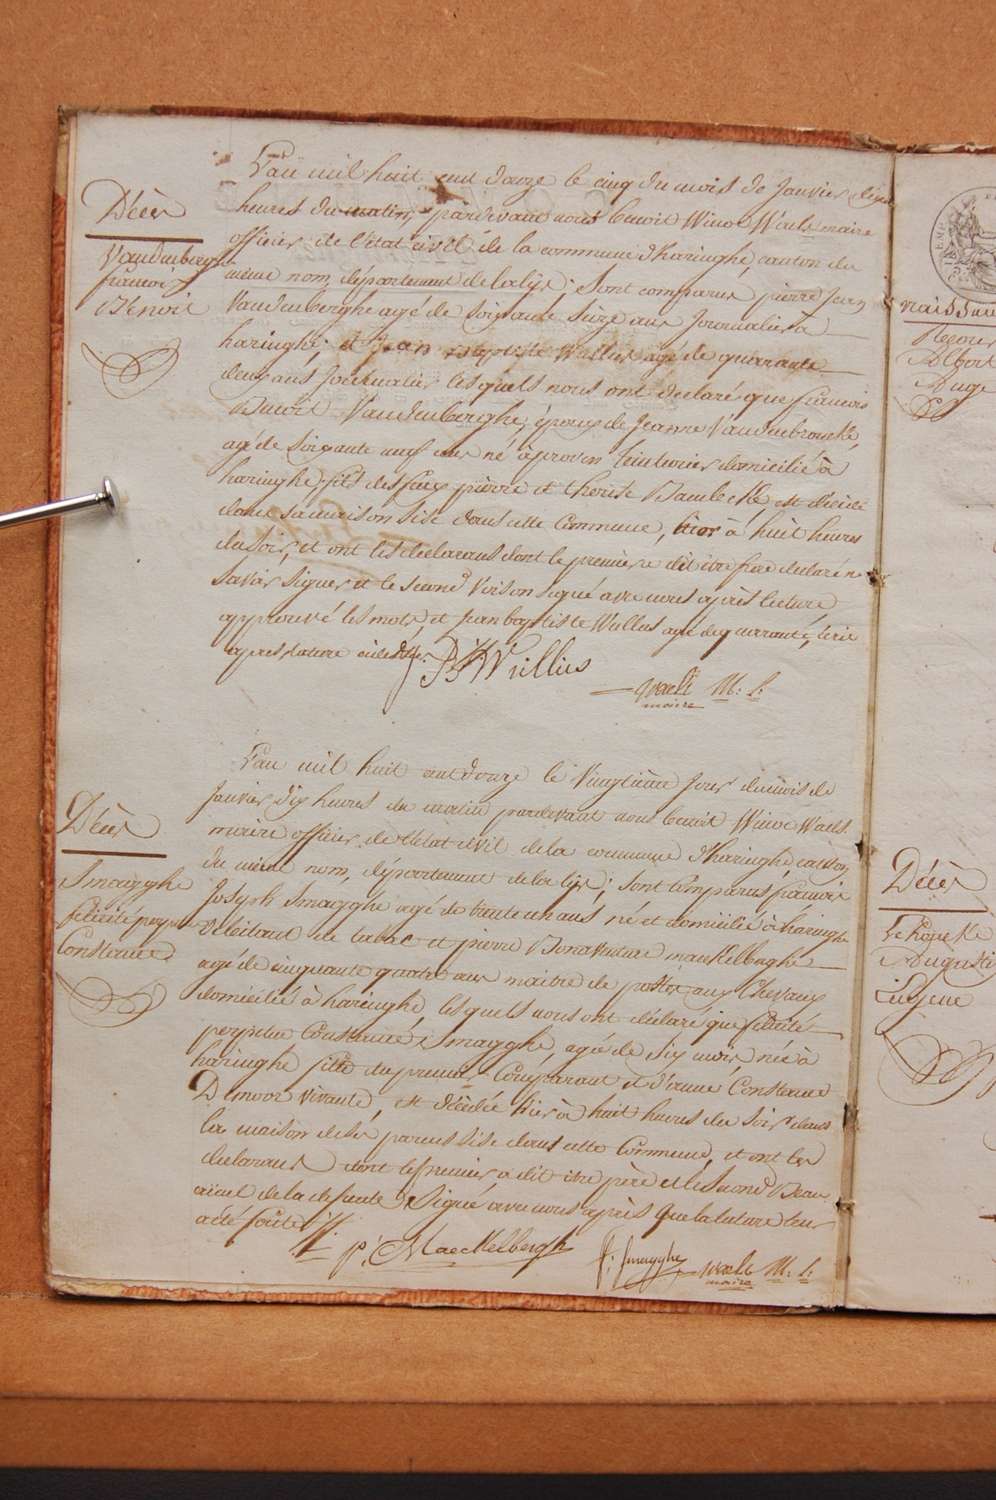 Décès
Vandenberghe
francois
Benoit
L'an mil huit cent douze le cinq du mois de Janvier dix
heures du matin, pardevant nous benoit Winoc Waels maire
officier de l'état civil de la commune d'haringhe, canton du
même nom, département de la lys; sont comparus pierre Jean
Vandenberghe agé de soixante seize ans Journalier à
haringhe; et Jean Baptiste Wullus agé de quarante
deux ans Journalier lesquels nous ont declaré que francois
Benoit Vandenberghe, époux de Jeanne Vandenbroucke,
agé de soixante neuf ans né à proven teinturier domicilié à
haringhe, fils des feus pierre et therese Bambecke, est décédé
dans sa maison sise dans cette commune, hier à huit heures
du soir, et ont les declarans dont le premier a dit être declaré ne
savoir signer et le second Voisin signé avec nous après lecture
approuvé les mots, et Jean baptiste Wullus agé de quarante,
après lecture
J B Wullus
Waels M: f:
maire
Décès
Smagghe
felicité perpetue
Constance
L'an mil huit cent douze le vingtième jour du mois de
Janvier dix heures du matin pardevant nous benoit Winoc Waels
maire officier de l'état civil de la commune d'haringhe, canton
du même nom, département de la lys; sont comparus francois
Joseph Smagghe agé de trente un ans né et domicilié à haringhe
debitant de tabac et pierre Bonaventure maeckelberghe
agé de cinquante quatre ans maitre de postes aux chevaux
domiciliés à haringhe, lesquels nous ont declaré que felicité
perpetue Constance Smagghe, agée de six mois née à
haringhe fille du premier Comparant et d'anne Constance
Denoor vivante, est décédée hier à huit heures du soir dans
la maison de ses parens sise dans cette Commune, et ont les
declarans dont le premier a dit être père et le second Beau
aïeul de la defunte Signé avec nous après que lecture leur
a été faite
P: Maeckelbergh
f: smagghe
Waels M: f:
maire
naissance
Albert
Décès
Augustin
Eugene